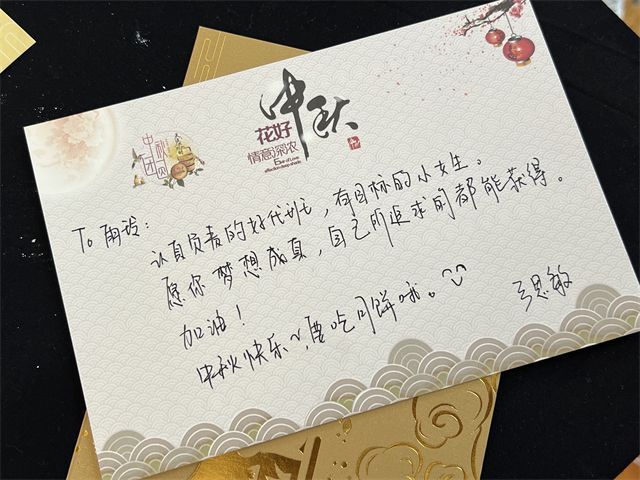 中秋
花好
情意深浓
中秋
团圆
To 雨玲:
认真负责的好代班,有目标的小女生。
愿你梦想成真,自己所追求的都能获得。
加油!
中秋快乐~,要吃月饼哦。
思敏